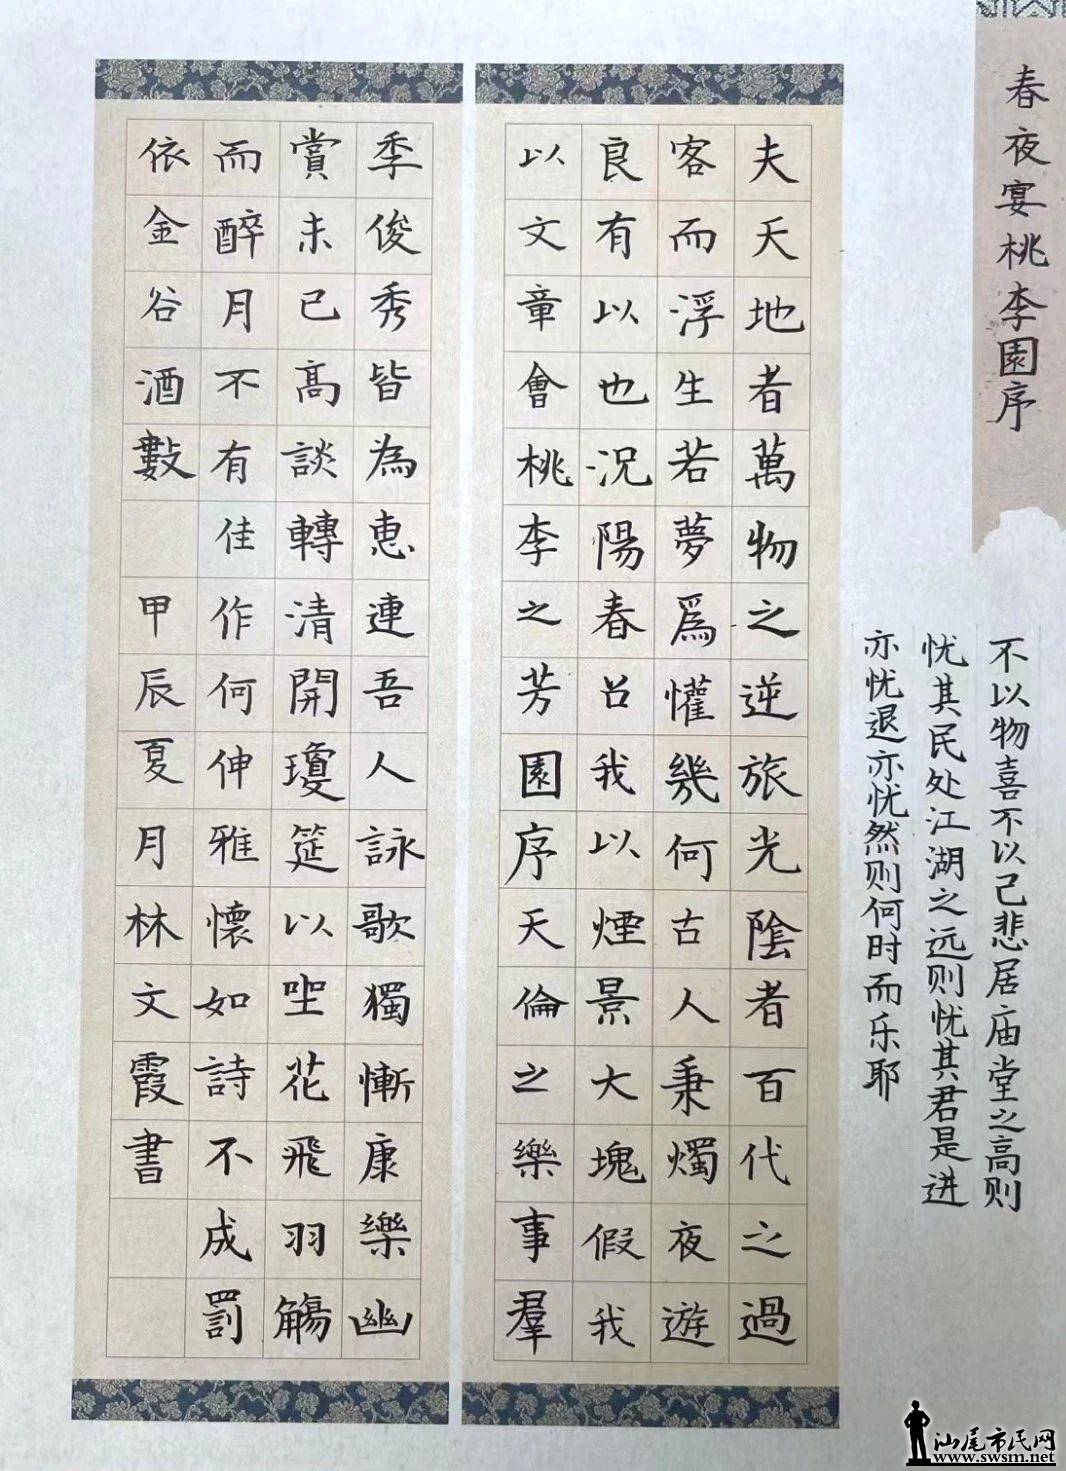 春夜宴桃李園序
不以物喜不以己悲居庙堂之高则
忧其民处江湖之远则忧其君是进
亦忧退亦忧然则何时而乐耶
夫天地者萬物之逆旅光陰者百代之過
客而浮生若夢爲懽幾何古人秉燭夜遊
良有以也况陽春召我以煙景大塊假我
以文章會桃李之芳園序天倫之樂事羣
季俊秀皆為惠連吾人詠歌獨慚康樂幽
賞未已高談轉清開瓊筵以坐花飛羽觴
而醉月不有佳作何伸雅懷如詩不成罰
依金谷酒數 甲辰夏月林文霞書
汕尾市民网
www.swsm.net